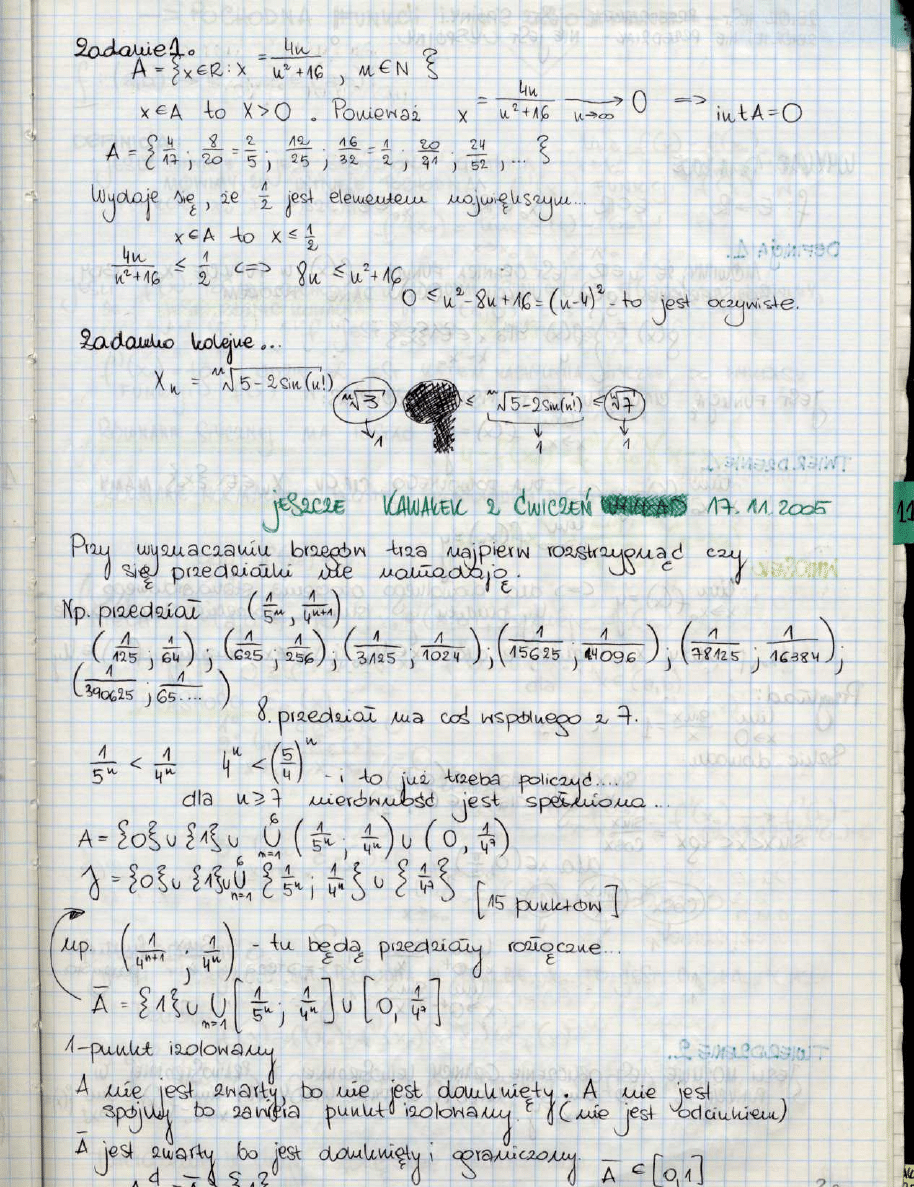 Zadanie 1.
A = {x∈R: x = 4n/(n²+16), n∈N}
x∈A to x>0. Ponieważ x = 4n/(n²+16) →(n→∞) 0 => intA=0
A = {4/17; 8/20 = 2/5; 12/25; 16/32 = 1/2; 20/41; 24/52, ...}
Wydaje się, że 1/2 jest elementem największym...
x∈A to x ≤ 1/2
4n/(n²+16) ≤ 1/2 <=> 8n ≤ n²+16
0 ≤ n²-8n+16 = (n-4)² - to jest oczywiste.
Zadanko kolejne...
Xₙ = ⁿ√(5-2sin(n!))
ⁿ√3 ≤ ⁿ√(5-2sin(n!)) ≤ ⁿ√7
↓1 ↓1 ↓1
jESZCZE KAWAŁEK Z ĆWICZEŃ 17.11.2005
Przy wyznaczaniu brzegów trza najpierw rozstrzygnąć czy
się przedziałki nie nakładają.
Np. przedział (1/5ⁿ, 1/4ⁿ⁺¹)
(1/125; 1/64); (1/625; 1/256); (1/3125; 1/1024); (1/15625; 1/4096); (1/78125; 1/16384);
(1/390625; 1/65....)
8. przedział ma coś wspólnego z 7.
1/5ⁿ < 1/4ⁿ 4ⁿ < (5/4)ⁿ - i to już trzeba policzyć....
dla n≥7 nierówność jest spełniona...
A = {0} ∪ {1} ∪ ⋃ₙ₌₁⁶ (1/5ⁿ; 1/4ⁿ) ∪ (0, 1/4⁷)
J = {0} ∪ {1} ∪ ⋃ₙ₌₁⁶ {1/5ⁿ; 1/4ⁿ} ∪ {1/4⁷} [15 punktów]
np. (1/4ⁿ⁺¹; 1/4ⁿ) - tu będą przedziały rozłączne...
Ā = {1} ∪ ⋃ₙ₌₁ [1/5ⁿ; 1/4ⁿ] ∪ [0, 1/4⁷]
1-punkt izolowany
A nie jest zwarty, bo nie jest domknięty. A nie jest
spójny bo zawiera punkt izolowany (nie jest odcinkiem)
Ā jest zwarty bo jest domknięty i ograniczony Ā ⊂ [0,1]